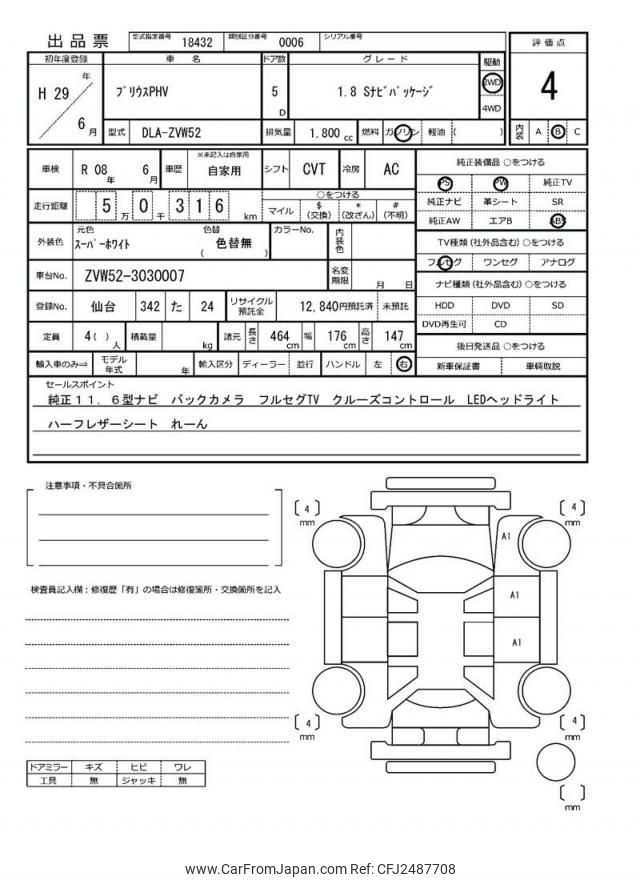 出品票 型式指定番号 18432 類別区分番号 0006 シリアル番号
初年度登録 車名 ドア数 グレード 駆動 評価点
H 29 年 6 月 プリウスPHV 5 D 1.8 Sナビパッケージ 2WD 4WD 4
型式 DLA-ZVW52 排気量 1,800 cc 燃料 ガソリン 軽油 ( ) 内装 A B C
車検 R 08 年 6 月 車歴 ※未記入は自家用 自家用 シフト CVT 冷房 AC
純正装備品 ○をつける
PS PW 純正TV
純正ナビ 革シート SR
純正AW エアB ABS
走行距離 5 万 0 千 3 1 6 km
○をつける
マイル $ (交換) * (改ざん) # (不明)
外装色 元色 スーパーホワイト 色替 ( 色替無 ) カラーNo. 内装色
TV種類 (社外品含む) ○をつける
フルセグ ワンセグ アナログ
車台No. ZVW52-3030007 名変期限 月 日
ナビ種類 (社外品含む) ○をつける
HDD DVD SD
DVD再生可 CD
登録No. 仙台 342 た 24 リサイクル預託金 12,840 円預託済 未預託
定員 4 ( ) 人 積載量 kg 諸元 長さ 464 cm 幅 176 cm 高さ 147 cm
後日発送品 ○をつける
新車保証書 車輌取説
輸入車のみ⇒ モデル年式 年 輸入区分 ディーラー 並行 ハンドル 左 右
セールスポイント
純正11.6型ナビ バックカメラ フルセグTV クルーズコントロール LEDヘッドライト
ハーフレザーシート れーん
注意事項・不具合箇所
検査員記入欄:修復歴「有」の場合は修復箇所・交換箇所を記入
[ 4 ] mm
[ 4 ] mm
A1
A1
A1
[ 4 ] mm
[ 4 ] mm
[ ] mm
ドアミラー キズ ヒビ ワレ
工具 無 ジャッキ 無
www.CarFromJapan.com Ref: CFJ2487708